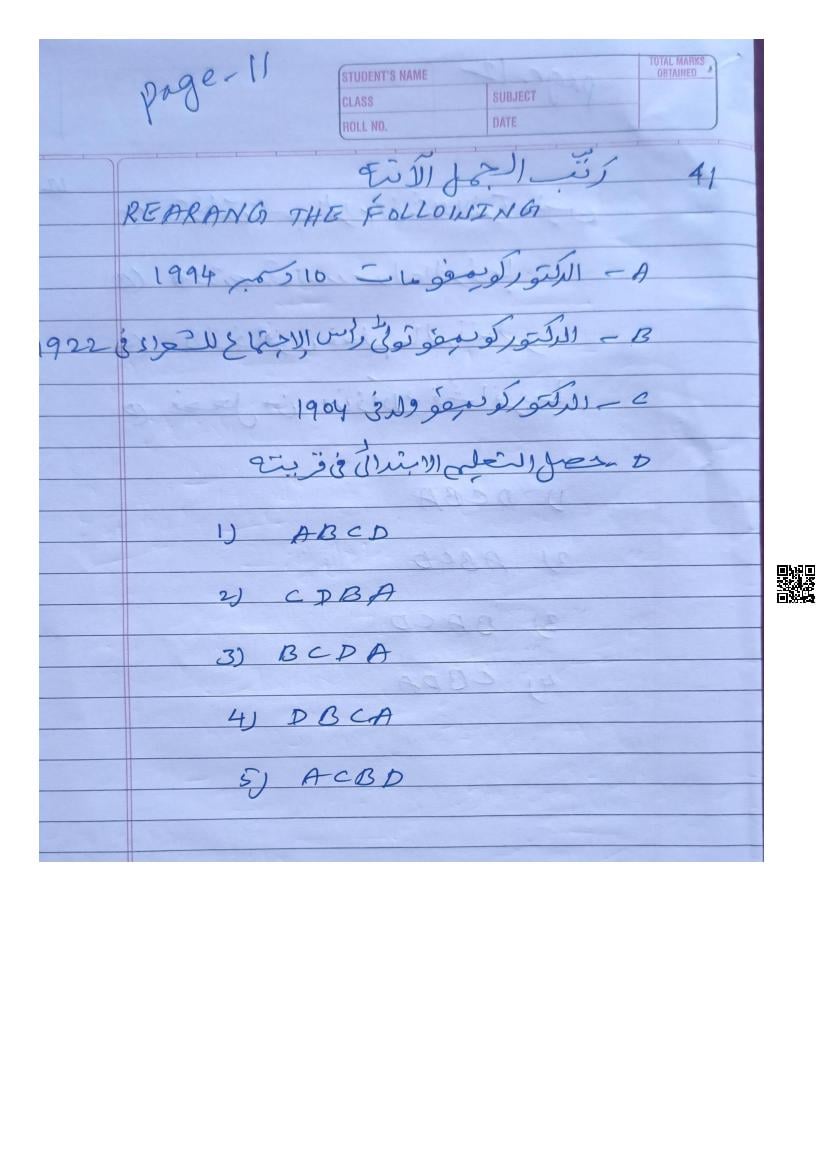 page-11
STUDENT'S NAME
TOTAL MARKS OBTAINED
CLASS
SUBJECT
ROLL NO.
DATE
41 رتّب الجمل الآتية
REARANG THE FOLLOWING
A - الدكتور كويمفو مات 10 دسمبر 1994
B - الدكتور كويمفو تولّى رأس الإجتماع للشعراء فى 1922
C - الدكتور كويمفو ولد فى 1904
D - حصل التعليم الابتدائى فى قريته
1) ABCD
2) CDBA
3) BCDA
4) DBCA
5) ACBD